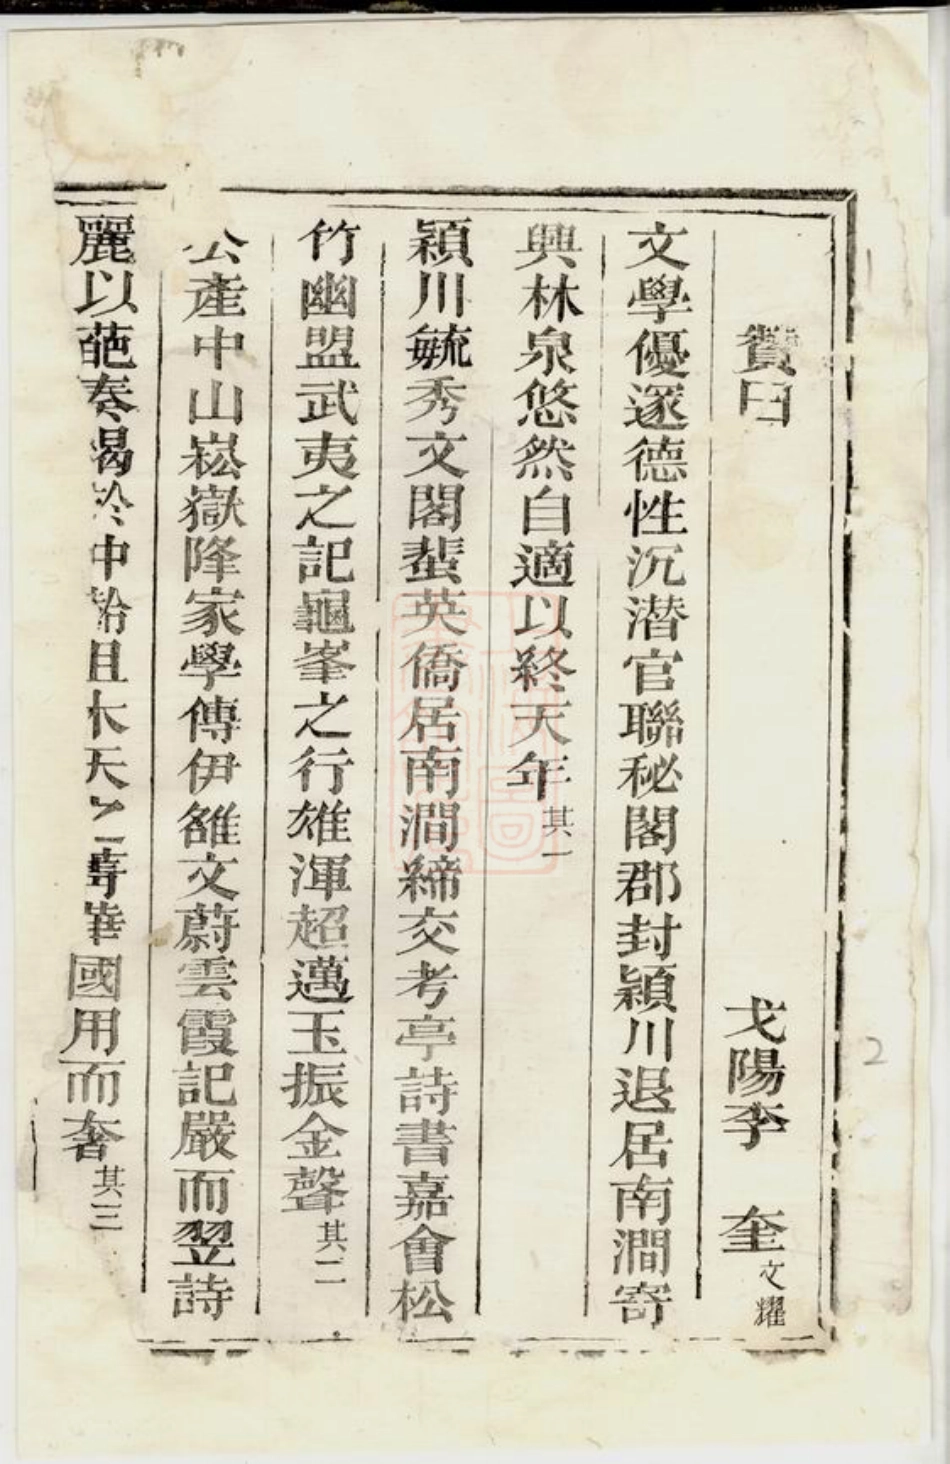 贊曰 戈陽李 奎文耀
文學優邃德性沉潜官聯秘閣郡封潁川退居南澗寄
興林泉悠然自適以終天年其一
潁川毓秀文閣蜚英僑居南澗締交考亭詩書嘉會松
竹幽盟武夷之記龜峯之行雄渾超邁玉振金聲其二
公產中山崧嶽降家學傳伊雒文蔚雲霞記嚴而翌詩
麗以葩奏 於中 且木天之 華國用而奢其三
2